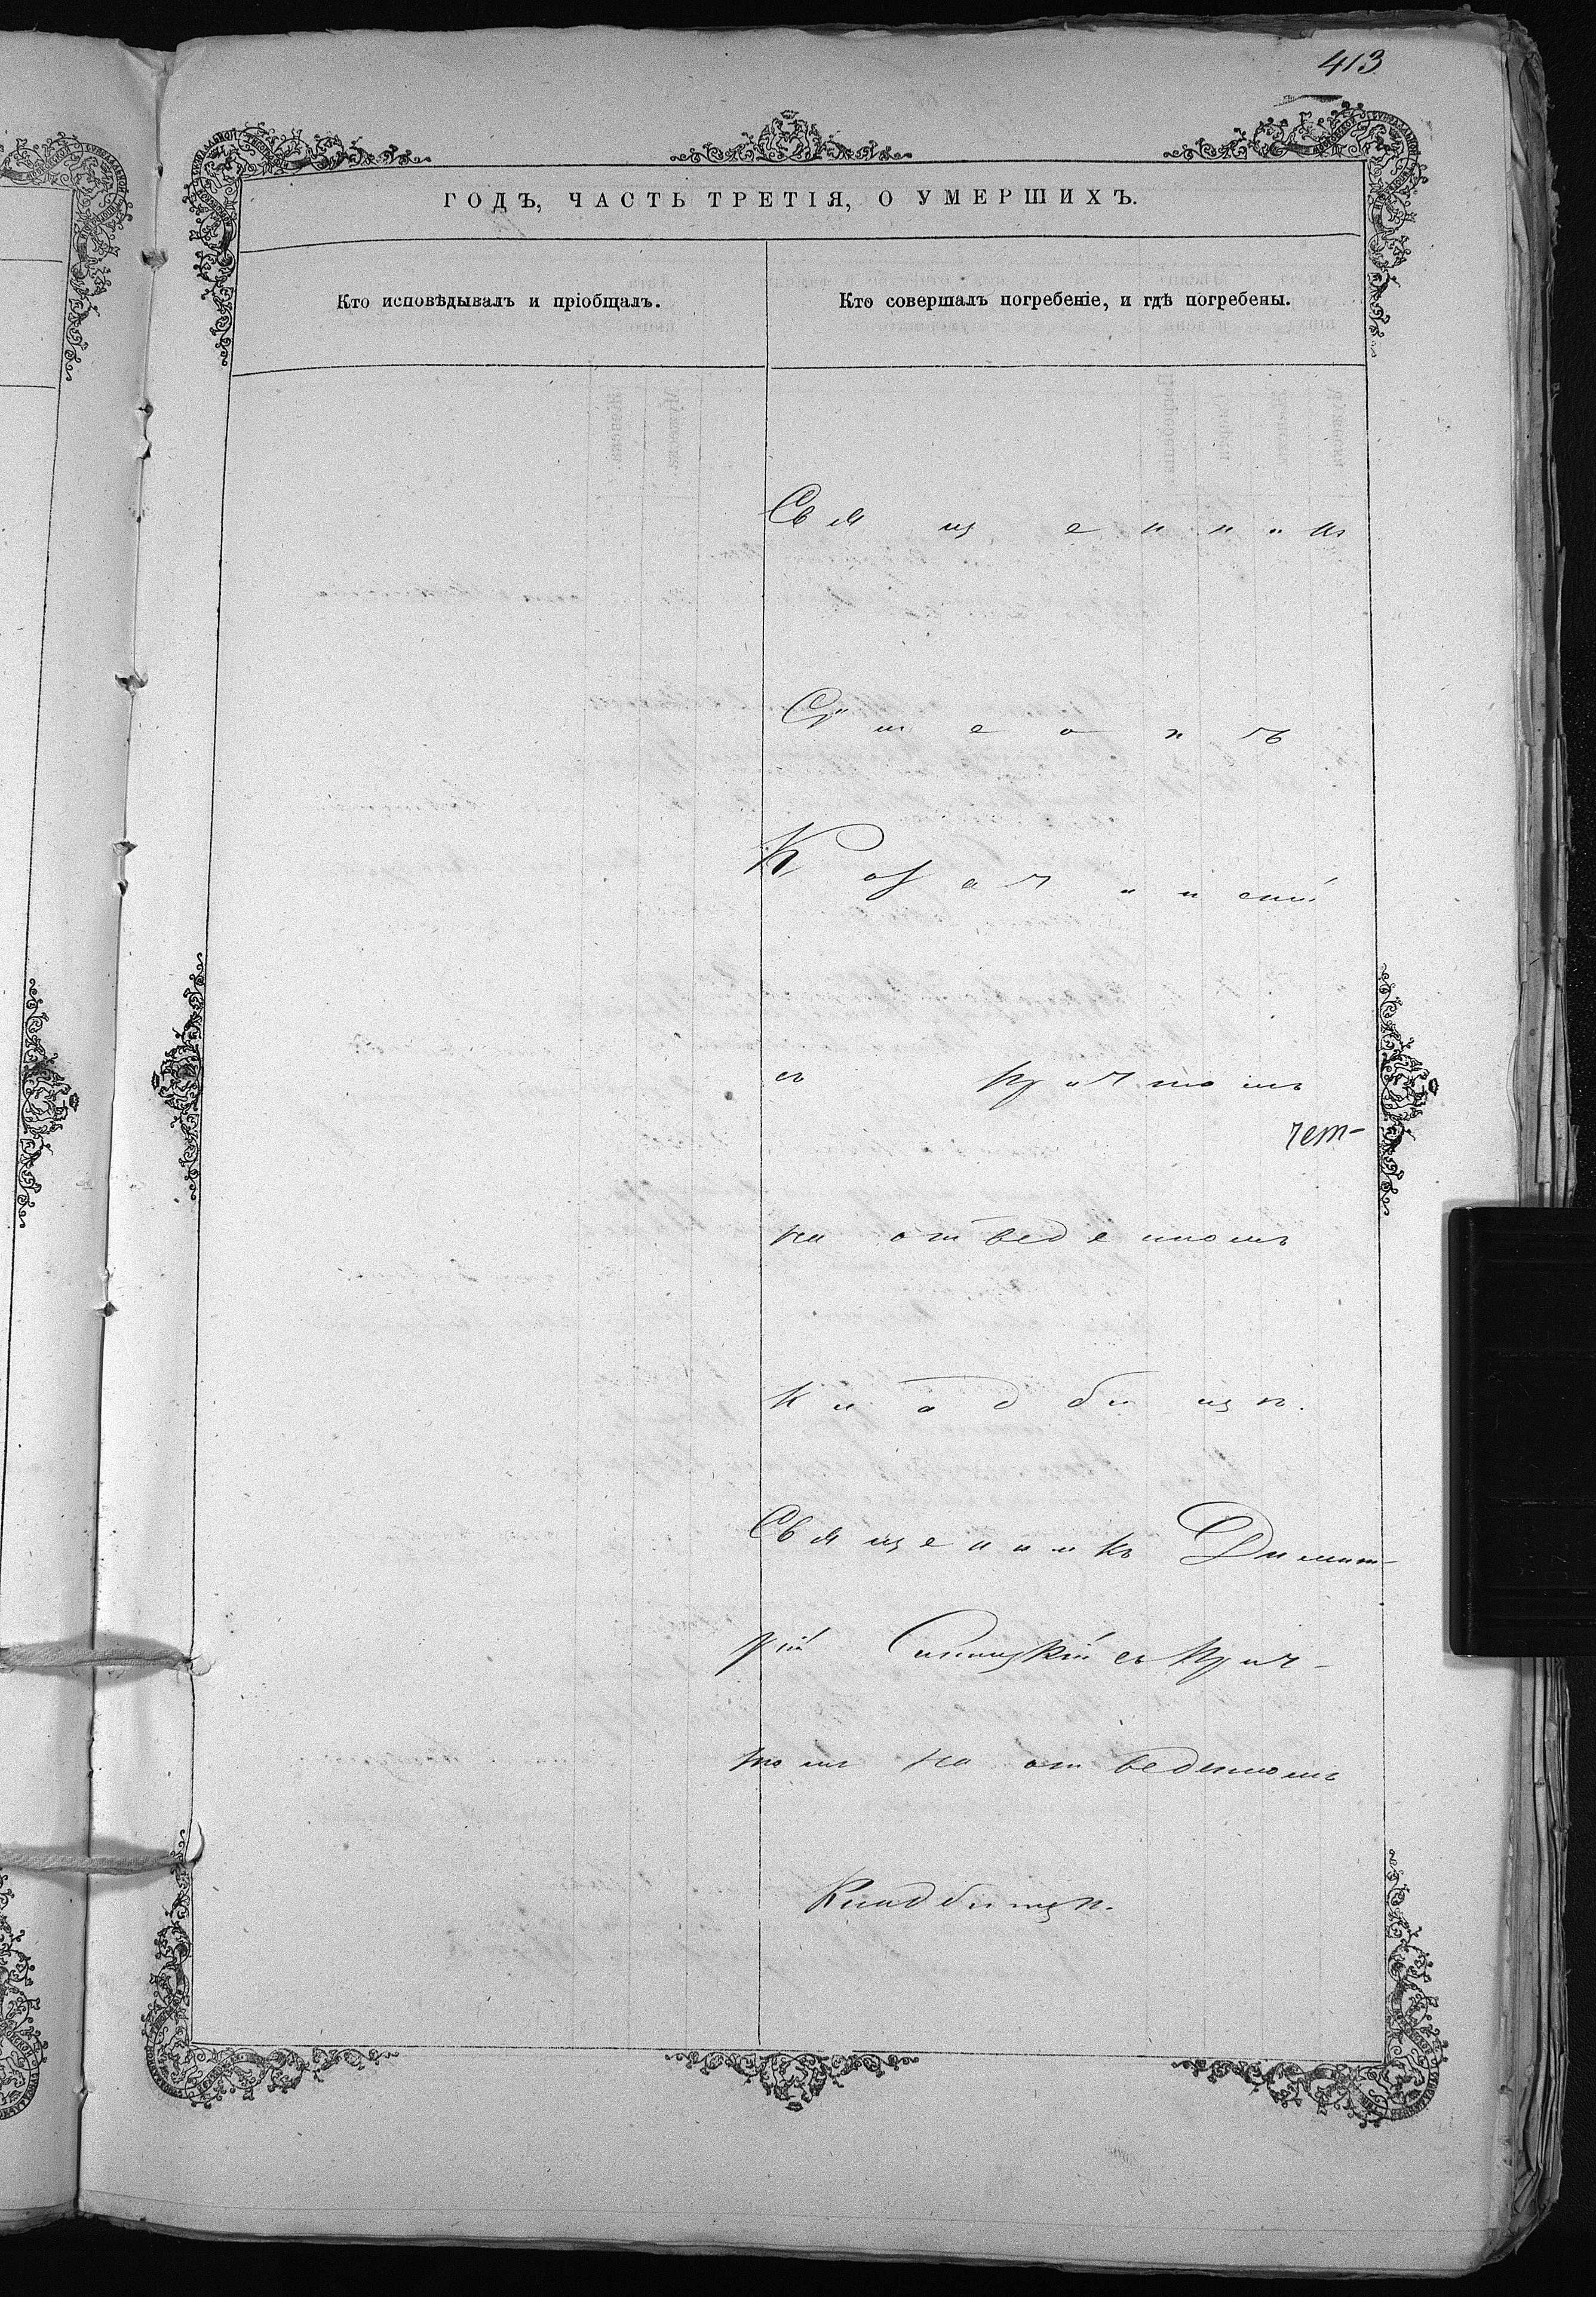 413
ГОДЪ, ЧАСТЬ ТРЕТІЯ, О УМЕРШИХЪ.
Кто исповѣдывалъ и пріобщалъ.
Кто совершалъ погребеніе, и гдѣ погребены.
Священник
Сѵмеонъ
съ причтомъ
чет-
на отведенномъ
кладбищѣ.
Священникъ Димит-
рій съ прич-
томъ на отведенномъ
кладбищѣ.